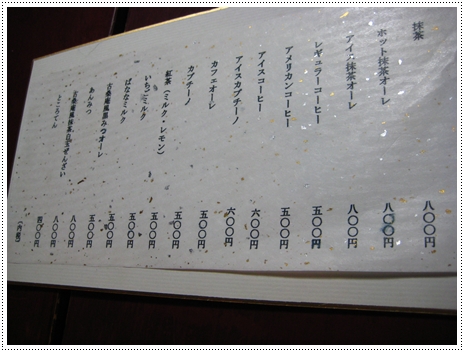 抹茶 八〇〇円
ホット抹茶オーレ 八〇〇円
アイス抹茶オーレ 八〇〇円
レギュラーコーヒー 五〇〇円
アメリカンコーヒー 五〇〇円
アイスコーヒー 六〇〇円
アイスカプチーノ 六〇〇円
カフェオーレ 五〇〇円
カプチーノ 五〇〇円
紅茶（ミルク・レモン） 五〇〇円
いちごミルク 五〇〇円
ばななミルク 五〇〇円
古桑庵風黒みつオーレ 五〇〇円
あんみつ 八〇〇円
古桑庵風抹茶白玉ぜんざい 八〇〇円
ところてん 四〇〇円
（内税）